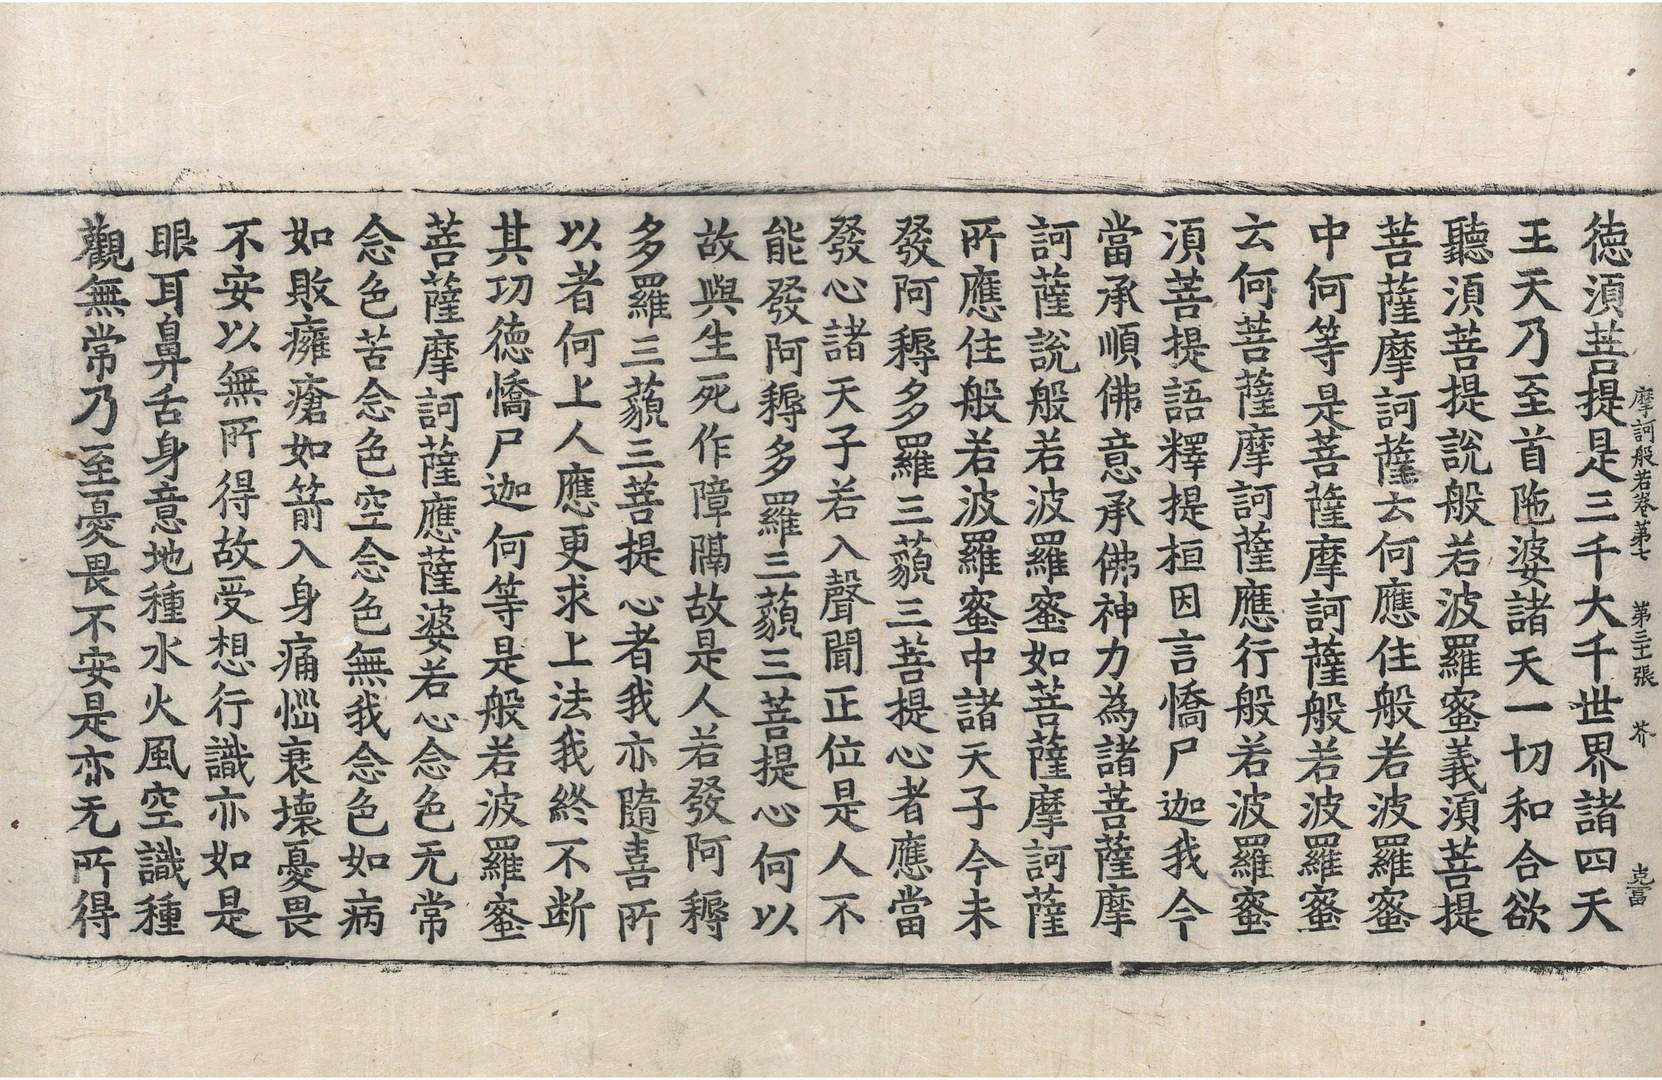 摩訶般若卷第七　第三十張　芥　克富
徳湏菩提是三千大千世界諸四天
王天乃至首陁婆諸天一切和合欲
聽湏菩提說般若波羅蜜義湏菩提
菩薩摩訶薩云何應住般若波羅蜜
中何等是菩薩摩訶薩般若波羅蜜
云何菩薩摩訶薩應行般若波羅蜜
湏菩提語釋提桓因言憍尸迦我今
當承順佛意承佛神力為諸菩薩摩
訶薩說般若波羅蜜如菩薩摩訶薩
所應住般若波羅蜜中諸天子今未
發阿耨多羅三藐三菩提心者應當
發心諸天子若入聲聞正位是人不
能發阿耨多羅三藐三菩提心何以
故與生死作障隔故是人若發阿耨
多羅三藐三菩提心者我亦隨喜所
以者何上人應更求上法我終不断
其功徳憍尸迦何等是般若波羅蜜
菩薩摩訶薩應薩婆若心念色无常
念色苦念色空念色無我念色如病
如敗癰瘡如箭入身痛惱衰壞憂畏
不安以無所得故受想行識亦如是
眼耳鼻舌身意地種水火風空識種
觀無常乃至憂畏不安是亦无所得